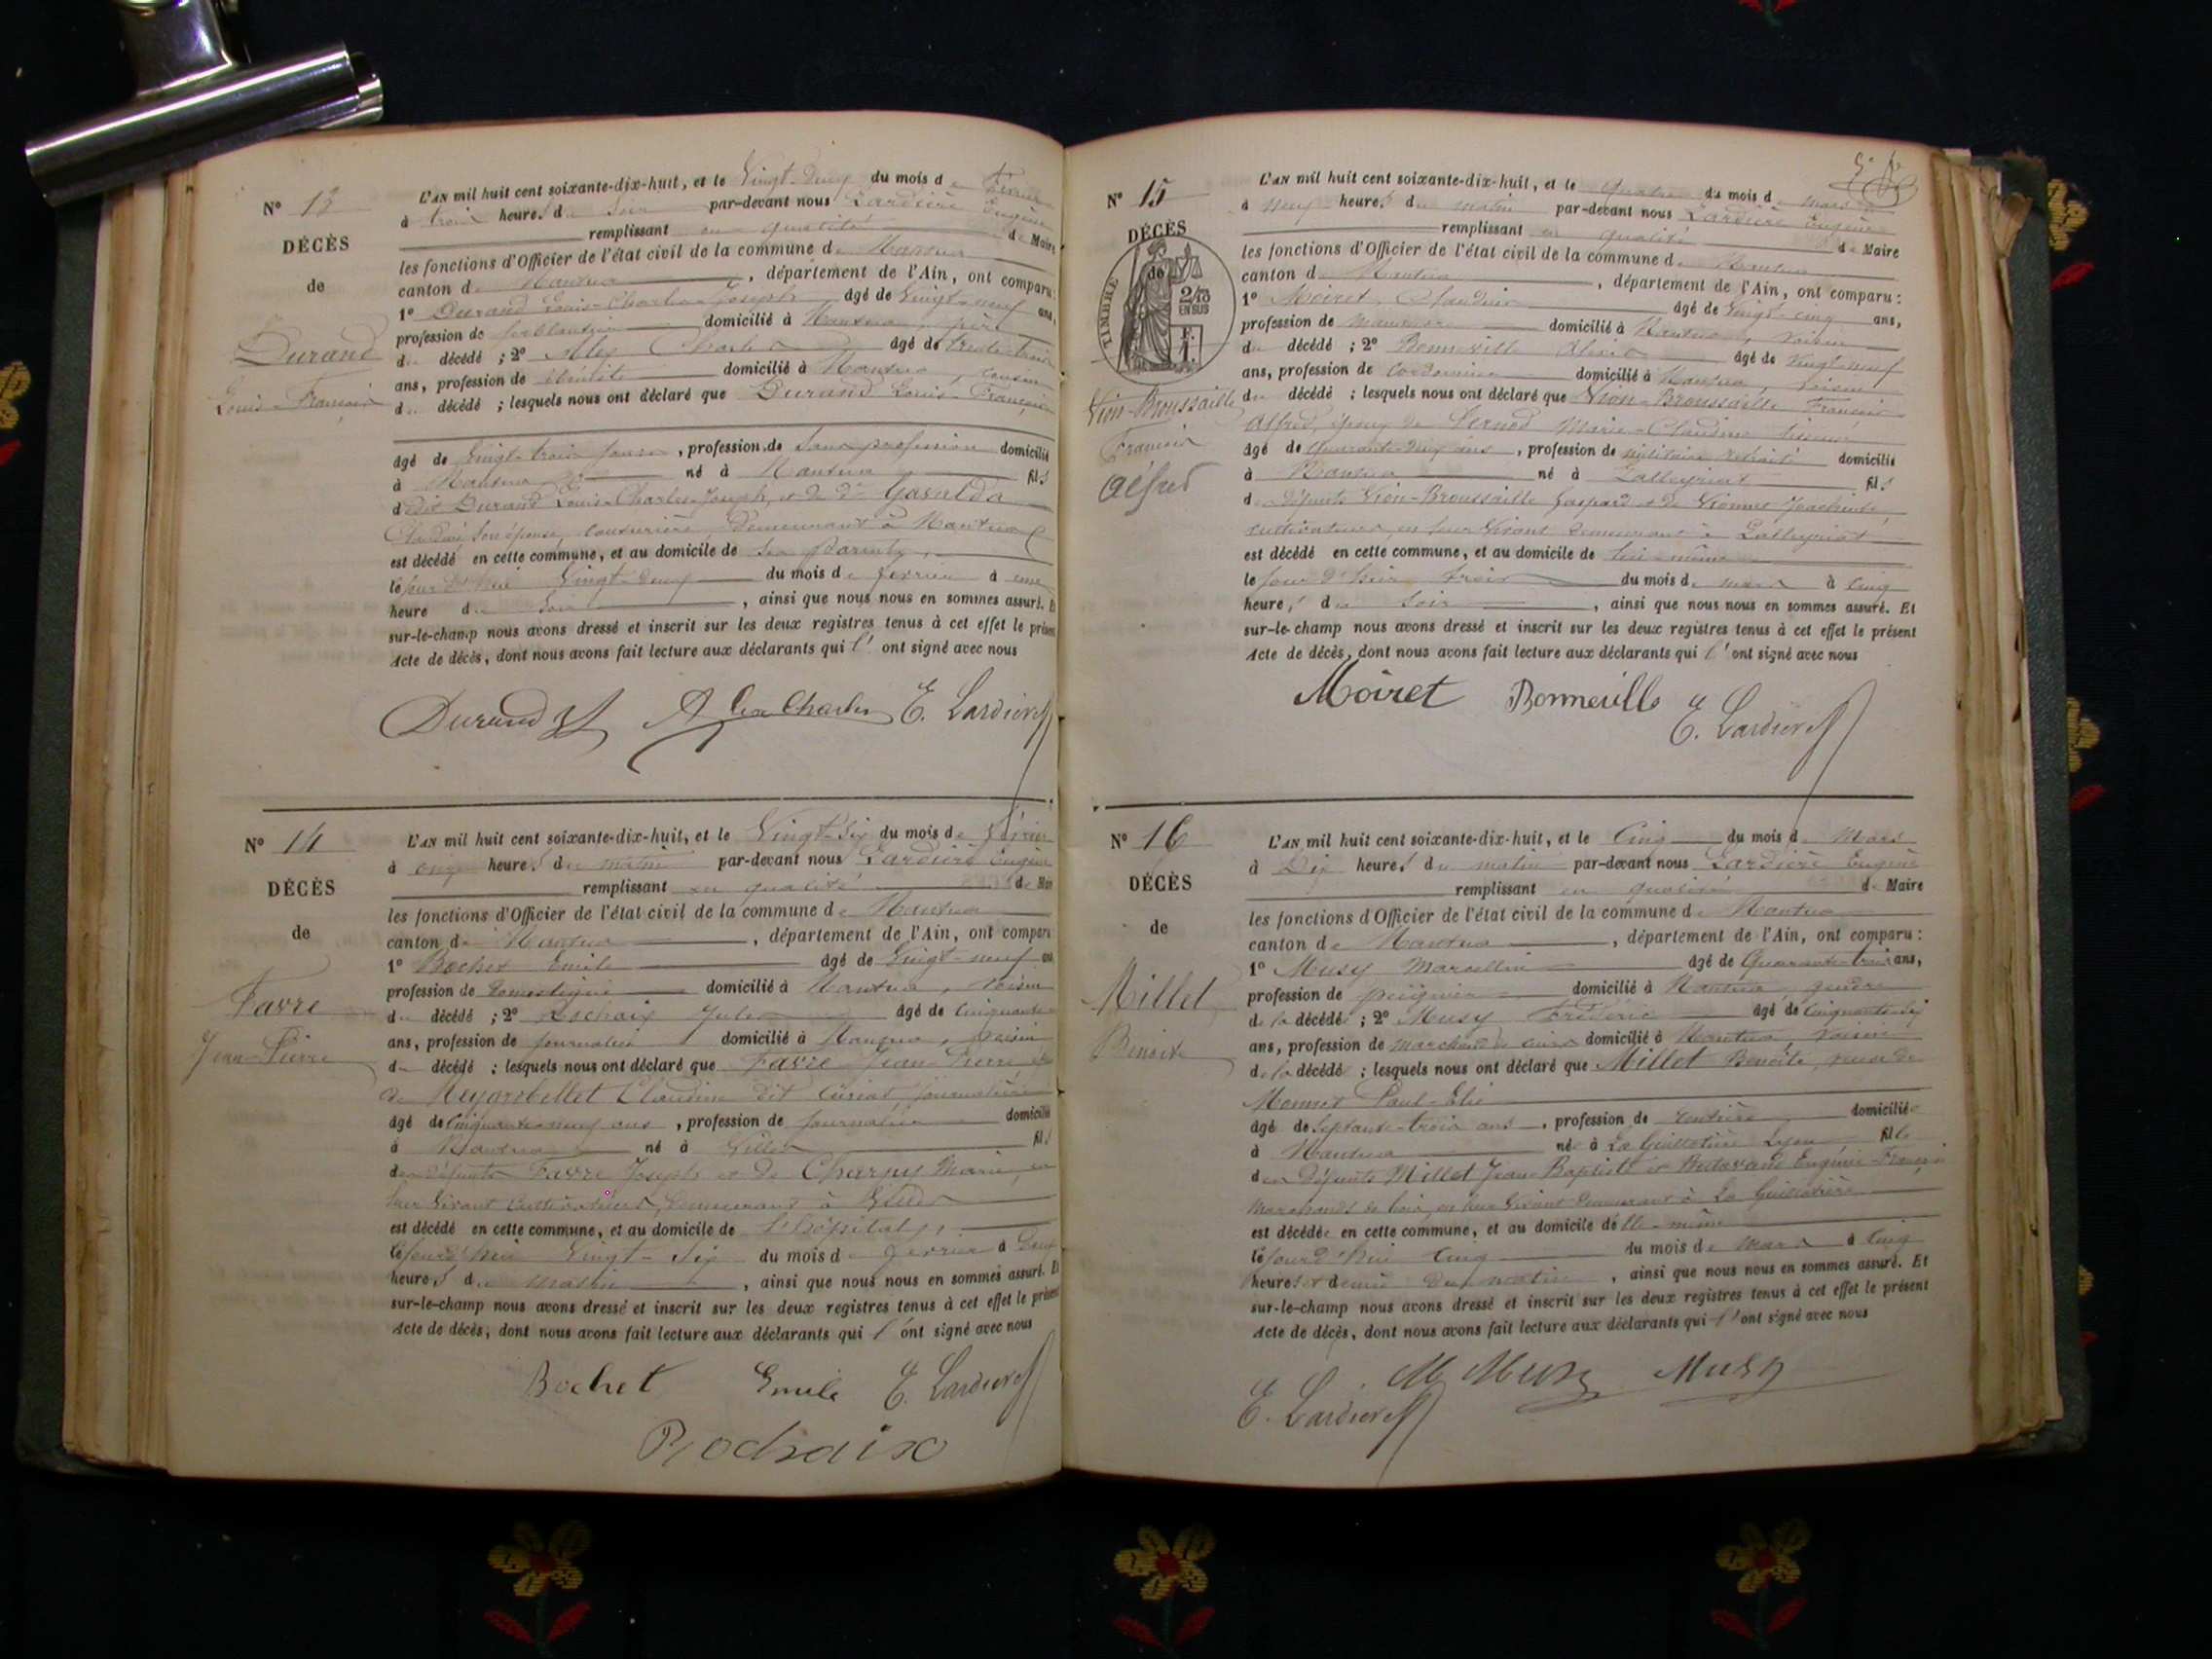 Nº 13
DÉCÈS
de
Durand
Louis-François
L'AN mil huit cent soixante-dix-huit, et le Vingt-deux du mois de Février
à trois heures du soir par-devant nous Lardière Eugène
remplissant en qualité de Maire
les fonctions d'Officier de l'état civil de la commune de Nantua
canton de Nantua, département de l'Ain, ont comparu:
1º Durand Louis-Charles-Joseph âgé de Vingt-neuf ans,
profession de ferblantier domicilié à Nantua, père
du décédé; 2º Alex Charles âgé de trente-trois
ans, profession de ébéniste domicilié à Nantua, cousin
du décédé; lesquels nous ont déclaré que Durand Louis-François
âgé de Vingt-trois jours, profession de Sans profession domicilié
à Nantua né à Nantua fils
de dit Durand Louis-Charles-Joseph, et de
son épouse, couturière, demeurant à Nantua
est décédé en cette commune, et au domicile de ses Parents,
le jour d'hui Vingt-deux du mois de février à une
heure du soir, ainsi que nous nous en sommes assuré. Et
sur-le-champ nous avons dressé et inscrit sur les deux registres tenus à cet effet le présent
Acte de décès, dont nous avons fait lecture aux déclarants qui l' ont signé avec nous
Durand Alex Charles E. Lardière
Nº 14
DÉCÈS
de
Favre
Jean-Pierre
L'AN mil huit cent soixante-dix-huit, et le Vingt-six du mois de Février
à onze heures du matin par-devant nous Lardière Eugène
remplissant en qualité de Maire
les fonctions d'Officier de l'état civil de la commune de Nantua
canton de Nantua, département de l'Ain, ont comparu
1º Bochet Emile âgé de Vingt-neuf ans
profession de domestique domicilié à Nantua, voisin
du décédé; 2º Rochaix Jules âgé de Cinquante
ans, profession de journalier domicilié à Nantua, voisin
du décédé; lesquels nous ont déclaré que Favre Jean-Pierre
de Claudine dit journalière
âgé de Cinquante-neuf ans, profession de journalier domicilié
à Nantua né à fils
des défunts Favre Joseph et de Charpy Marie, en
leur vivant cultivateurs, demeurant à
est décédé en cette commune, et au domicile de l'hôpital,
le jourd'hui Vingt-Six du mois de février à deux
heures du matin, ainsi que nous nous en sommes assuré. Et
sur-le-champ nous avons dressé et inscrit sur les deux registres tenus à cet effet le présent
Acte de décès, dont nous avons fait lecture aux déclarants qui l' ont signé avec nous
Bochet Emile E. Lardière
Rochaix
Nº 15
DÉCÈS
de
TIMBRE
2/10
EN SUS
F.
1.
Vion-Broussaille
François
Alfred
L'AN mil huit cent soixante-dix-huit, et le quatre du mois de mars
à neuf heures du matin par-devant nous Lardière Eugène
remplissant en qualité de Maire
les fonctions d'Officier de l'état civil de la commune de Nantua
canton de Nantua, département de l'Ain, ont comparu:
1º Moiret, Claudius âgé de Vingt-cinq ans,
profession de domicilié à Nantua, voisin
du décédé; 2º Bonneville Alexis âgé de vingt-neuf
ans, profession de Cordonnier domicilié à Nantua, voisin
du décédé; lesquels nous ont déclaré que Vion-Broussaille François
Alfred, époux de Marie-Claudine
âgé de quarante-deux ans, profession de militaire retraité domicilié
à Nantua né à Lalleyriat fils
des défunts Vion-Broussaille Gaspard et de Joachime,
cultivateurs, en leur vivant demeurant à Lalleyriat
est décédé en cette commune, et au domicile de lui-même
le jour d'hier trois du mois de mars à Cinq
heures du soir, ainsi que nous nous en sommes assuré. Et
sur-le-champ nous avons dressé et inscrit sur les deux registres tenus à cet effet le présent
Acte de décès, dont nous avons fait lecture aux déclarants qui l' ont signé avec nous
Moiret Bonneville
E. Lardière
Nº 16
DÉCÈS
de
Millet
Benoite
L'AN mil huit cent soixante-dix-huit, et le Cinq du mois de Mars
à Dix heures du matin par-devant nous Lardière Eugène
remplissant en qualité de Maire
les fonctions d'Officier de l'état civil de la commune de Nantua
canton de Nantua, département de l'Ain, ont comparu:
1º Musy Marcellin âgé de Quarante-trois ans,
profession de domicilié à Nantua, gendre
de la décédée; 2º Musy Frédéric âgé de Cinquante-six
ans, profession de marchand de cuirs domicilié à Nantua, voisin
de la décédée; lesquels nous ont déclaré que Millet Benoîte, veuve de
Monnet Paul-Elie
âgé de Septante-trois ans, profession de rentière domiciliée
à Nantua née à La Guillotière Lyon fille
des défunts Millet Jean-Baptiste et Eugénie
marchands de bois, en leur vivant demeurant à La Guillotière
est décédée en cette commune, et au domicile d'elle-même
le jourd'hui Cinq du mois de mars à Cinq
heures et demie du matin, ainsi que nous nous en sommes assuré. Et
sur-le-champ nous avons dressé et inscrit sur les deux registres tenus à cet effet le présent
Acte de décès, dont nous avons fait lecture aux déclarants qui l' ont signé avec nous
E. Lardière M Musy Musy